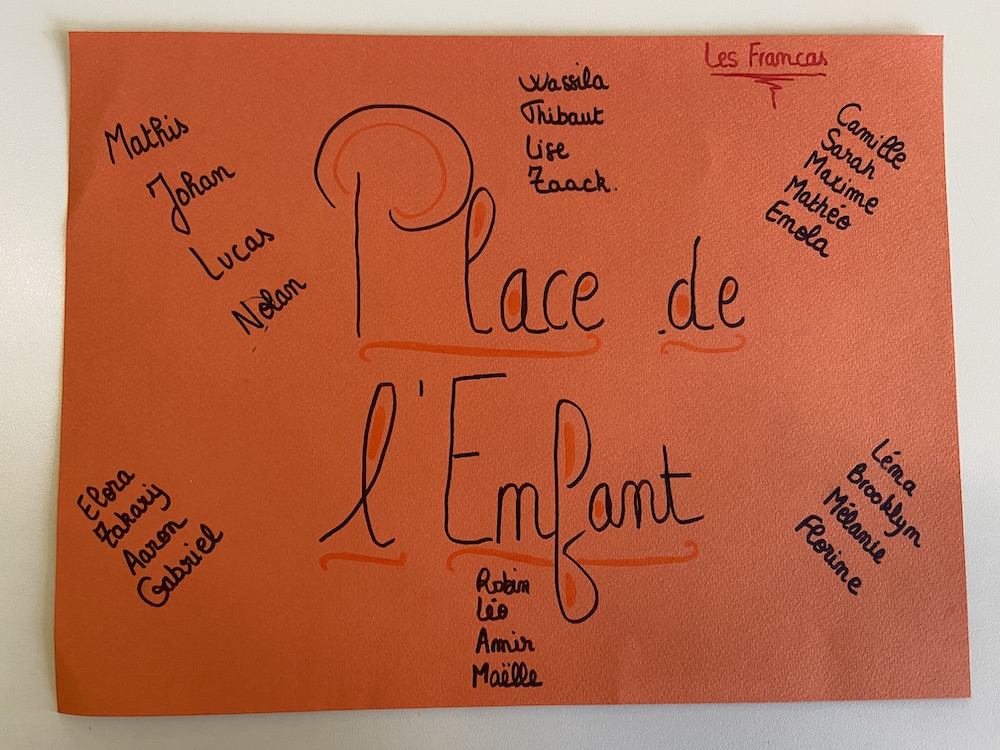 Les Francas
Wassila
Thibaut
Lise
Zaack.
Mathis
Johan
Lucas
Nolan
Camille
Sarah
Maxime
Mathéo
Emola
Place de
l'Enfant
Elora
Zakary
Aaron
Gabriel
Robin
Léo
Amir
Maëlle
Léna
Brooklyn
Mélanie
Florine